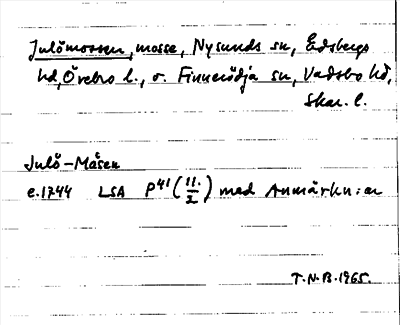 Julömossen, mosse, Nysunds sn, Edsbergs
hd, Örebro l., o. Finnerödja sn, Vadsbo hd,
Skar. l.
Julö-Måsen
e.1744 LSA P41 (11./2) med Anmärkn:ar
T.N.B. 1965.